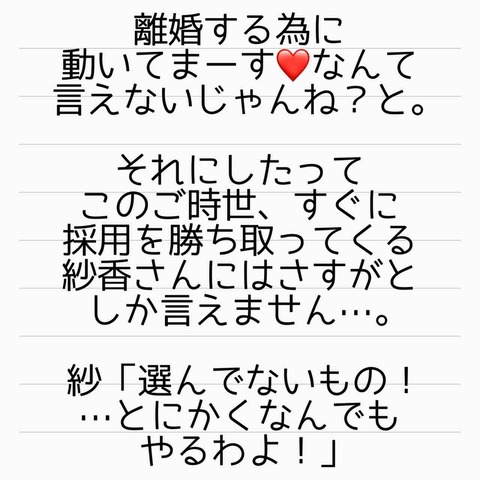 離婚する為に
動いてまーす❤️なんて
言えないじゃんね？と。
それにしたって
このご時世、すぐに
採用を勝ち取ってくる
紗香さんにはさすがと
しか言えません…。
紗「選んでないもの！
…とにかくなんでも
やるわよ！」